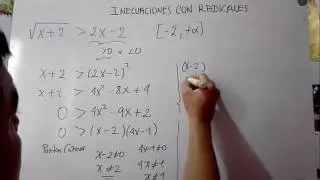 INECUACIONES CON RADICALES
√x+2 > 2x-2 [-2,+α)
≥0 <0
x+2 > (2x-2)²
x+2 > 4x²-8x+4
0 > 4x²-9x+2
0 > (x-2)(4x-1)
(x-2)
Puntos
x-2≠0 4x-1≠0
x≠2 4x≠1
x≠1